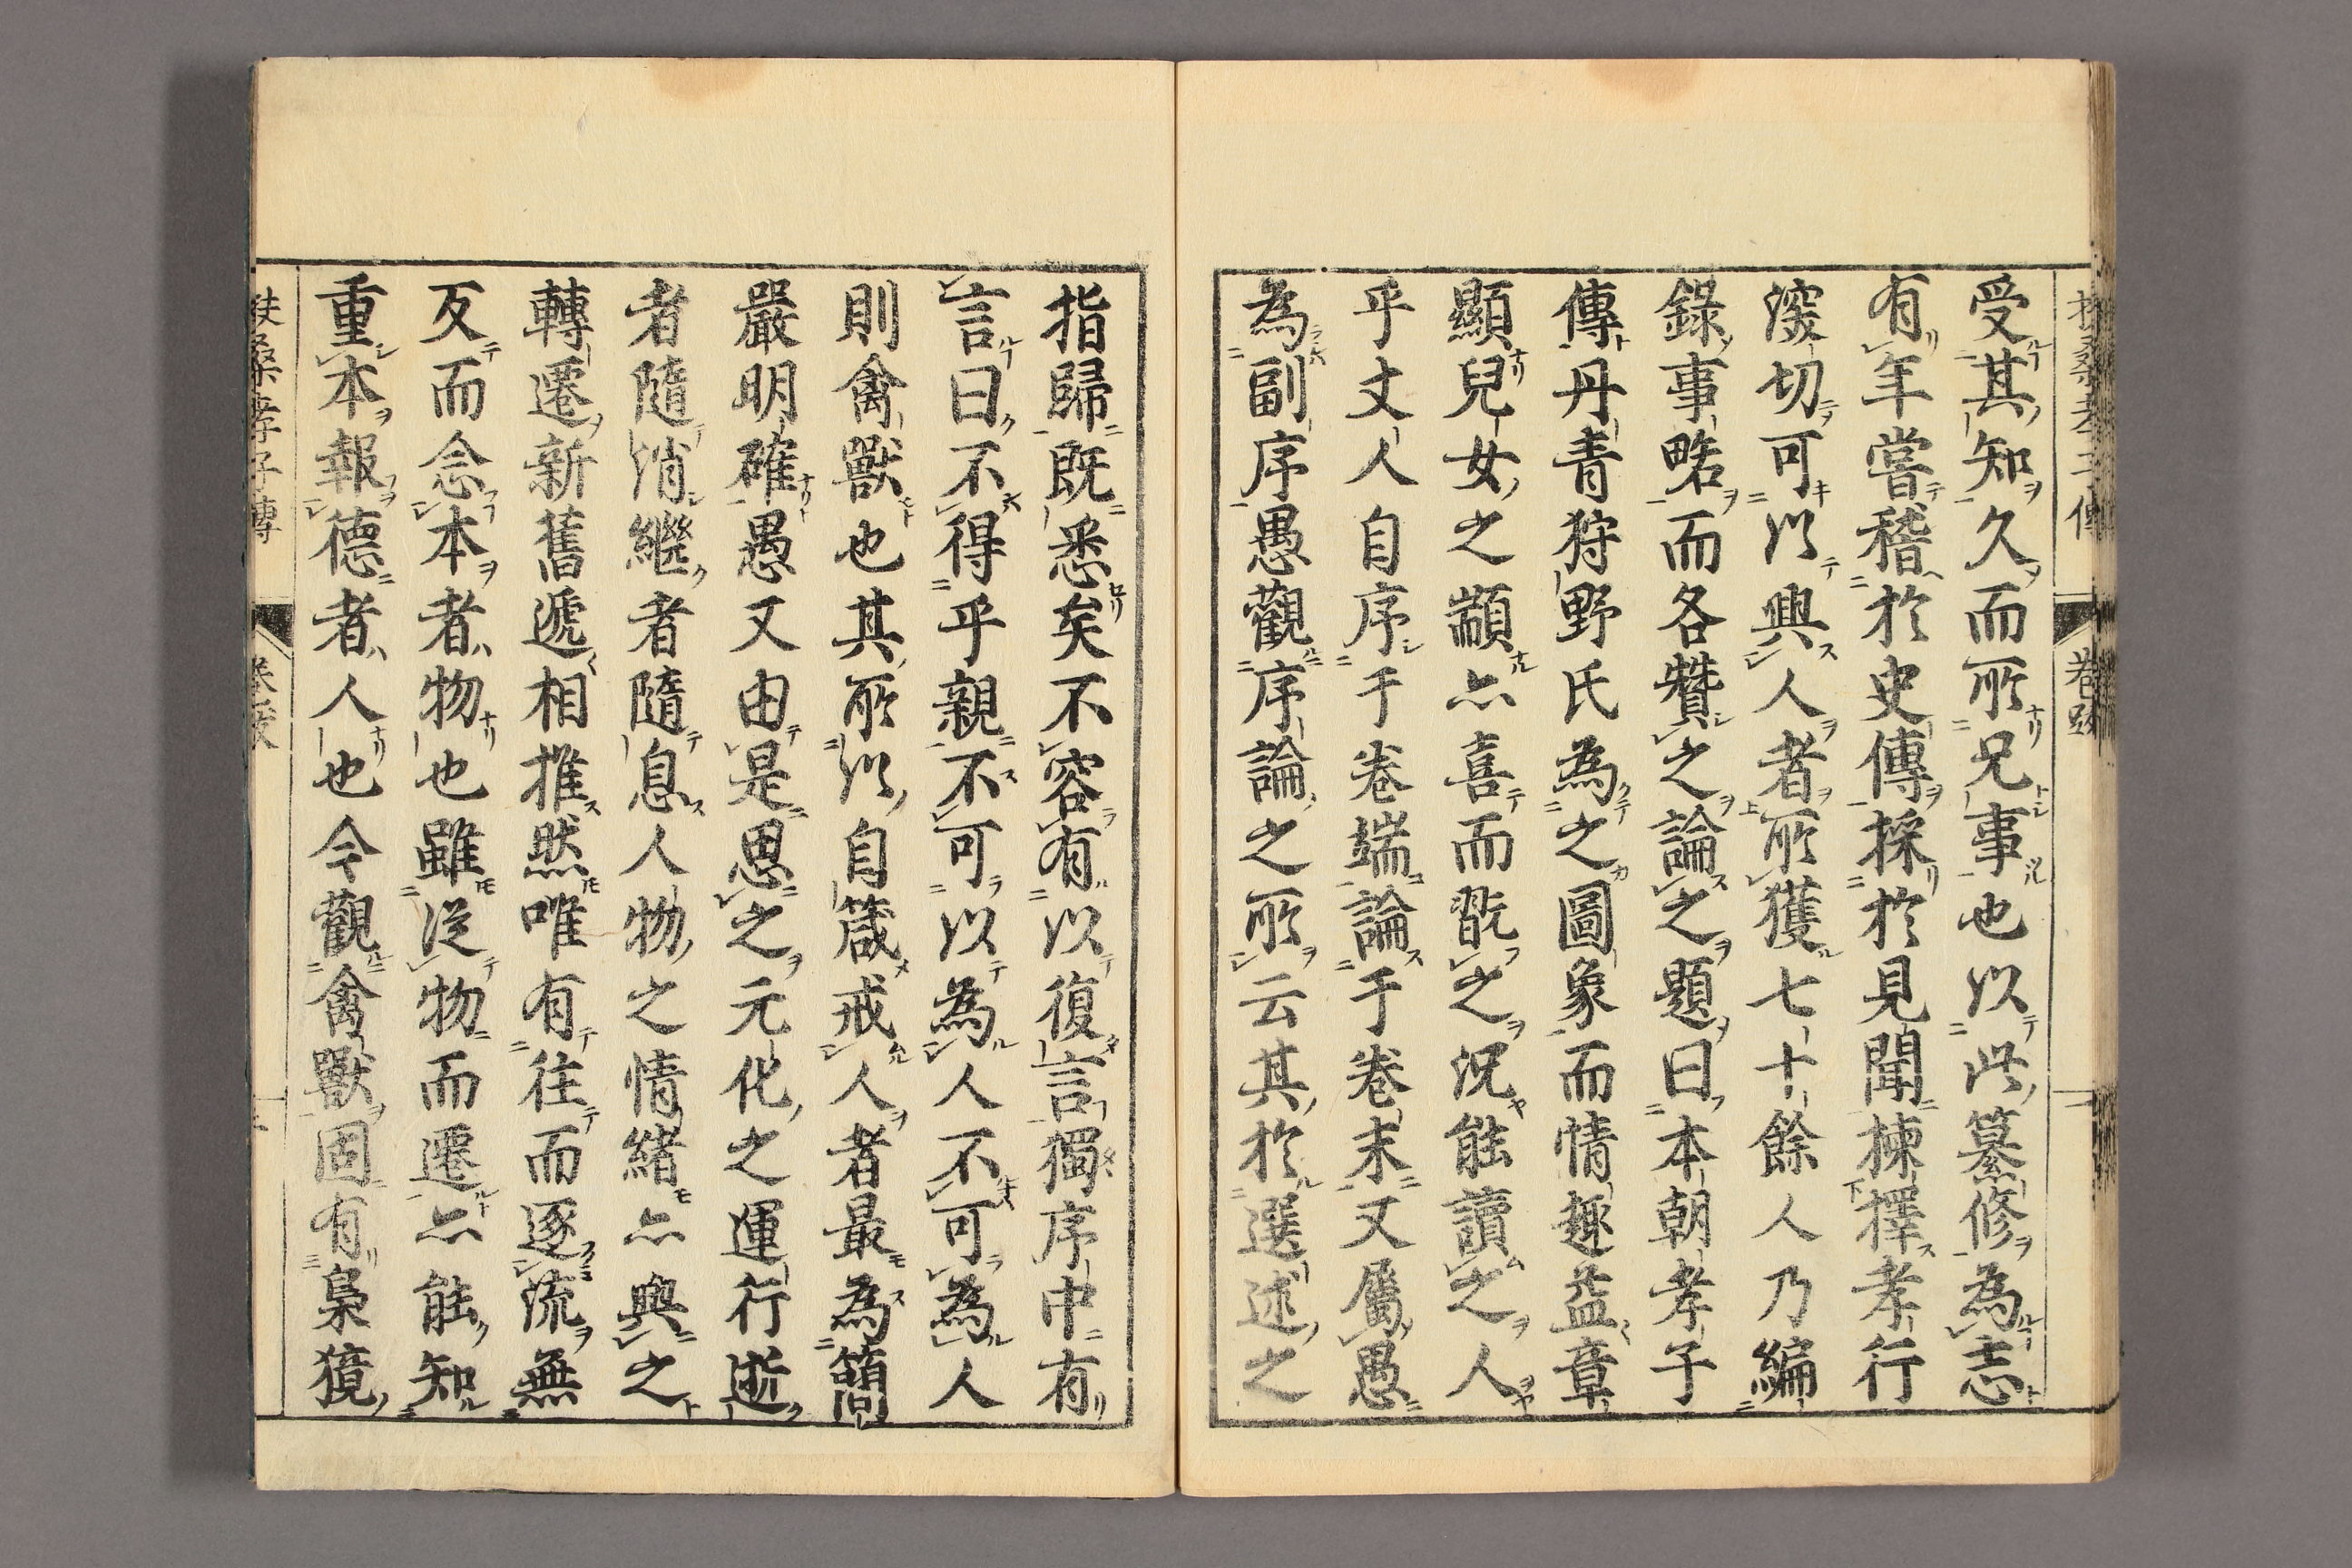 受其知久而所兄事也以此纂修為志
有年嘗稽於史傳採於見聞揀擇孝行
深切可以興人者所獲七十餘人乃編
錄事略而各贊之論之題曰本朝孝子
傳丹青狩野氏為之圖象而情趣益章
顯兒女之顓亦喜而翫之況能讀之人
乎丈人自序于卷端論于卷末又屬愚
為副序愚觀序論之所云其於選述之
指歸既悉矣不容有以復言獨序中有
言曰不得乎親不可以為人不可為人
則禽獸也其所以自箴戒人者最為簡
嚴明確愚又由是思之元化之運行逝
者隨消繼者隨息人物之情緒亦與之
轉遷新舊遞相推然唯有往而逐流無
反而念本者物也雖從物而遷亦能知
重本報德者人也今觀禽獸固有梟獍
扶桑孝子傳